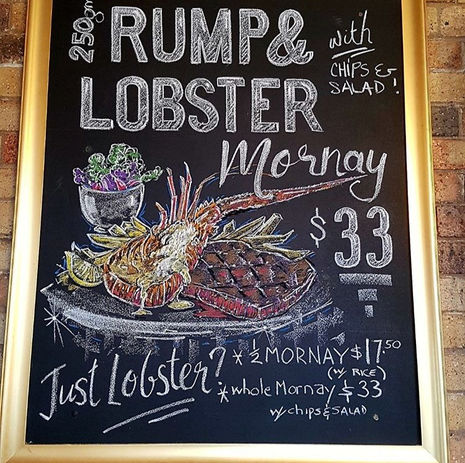 250gm RUMP&
LOBSTER
Mornay
with
CHIPS &
SALAD!
$33
Just Lobster?
* ½ MORNAY $17.50
(w/ RICE)
* whole Mornay $33
w/ chips & SALAD